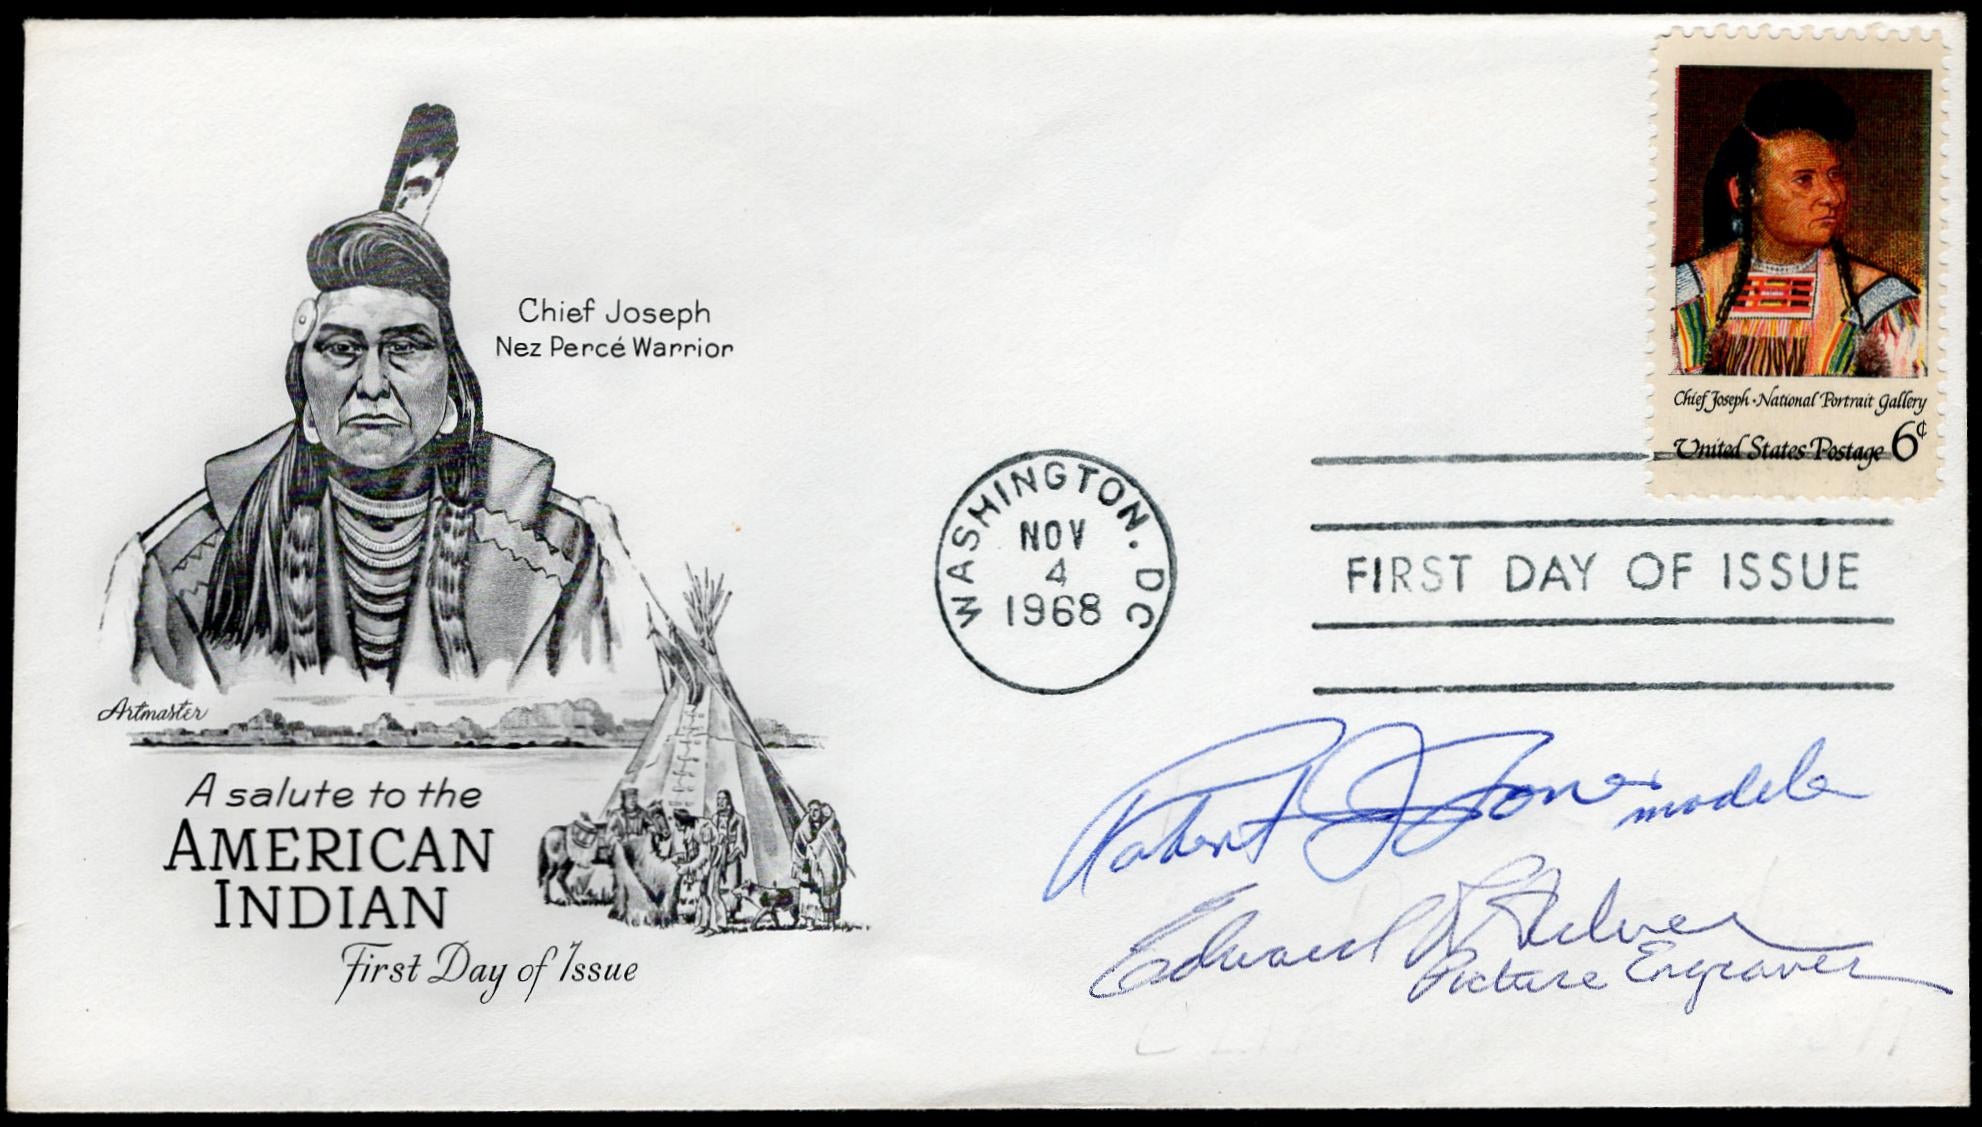 Chief Joseph
Nez Percé Warrior
Artmaster
A salute to the
AMERICAN
INDIAN
First Day of Issue
Chief Joseph · National Portrait Gallery
United States Postage 6¢
WASHINGTON. DC
NOV
4
1968
FIRST DAY OF ISSUE
Robert J Jones modeler
Edward R Felver
Picture Engraver